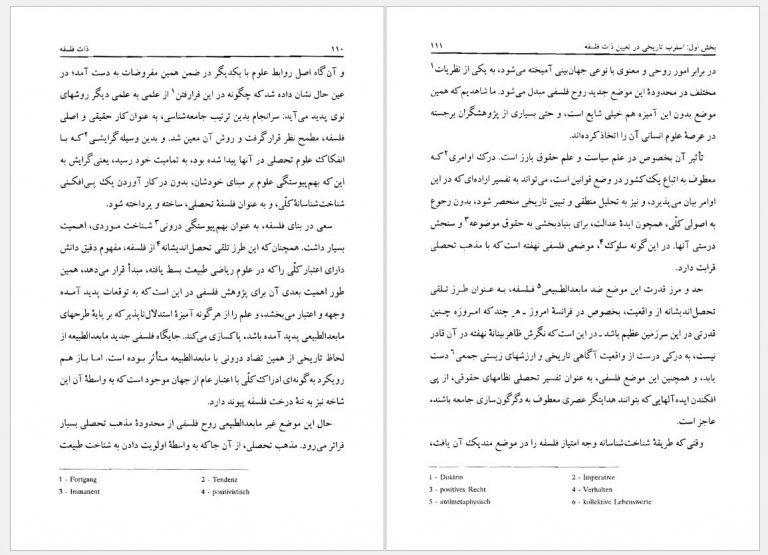 ۱۱۰ ذات فلسفه
و آن گاه اصل روابط علوم با یکدیگر در ضمن همین مفروضات به دست آمد؛ در
عین حال نشان داده شد که چگونه در این فرارفتن۱ از علمی به علمی دیگر روشهای
نوی پدید می‌آید: سرانجام بدین ترتیب جامعه‌شناسی، به عنوان کار حقیقی و اصلی
فلسفه، مطمح نظر قرار گرفت و روش آن معین شد. و بدین وسیله گرایشی۲ که با
انفکاک علوم تحصلی در آنها پیدا شده بود، به تمامیت خود رسید، یعنی گرایش به
این که بهم‌پیوستگی علوم بر مبنای خودشان، بدون در کار آوردن یک پی‌افکنی
شناخت‌شناسانهٔ کلّی، و به عنوان فلسفهٔ تحصلی، ساخته و پرداخته شود.
سعی در بنای فلسفه، به عنوان بهم‌پیوستگی درونی۳ شناخت موردی، اهمیت
بسیار داشت. همچنان‌که این طرز تلقی تحصل‌اندیشانه۴ از فلسفه، مفهوم دقیق دانش
دارای اعتبار کلّی را که در علوم ریاضی طبیعت بسط یافته، مبدأ قرار می‌دهد، همین
طور اهمیت بعدی آن برای پژوهش فلسفی در این است که به توقعات پدید آمده
وجهه و اعتبار می‌بخشد، و علم را از هرگونه آمیزهٔ استدلال‌ناپذیر که بر پایهٔ طرحهای
مابعدالطبیعی پدید آمده باشد، پاکسازی می‌کند. جایگاه فلسفی جدید مابعدالطبیعه از
لحاظ تاریخی از همین تضاد درونی با مابعدالطبیعه متأثر بوده است. اما باز هم
رویکرد به گونه‌ای ادراک کلّی با اعتبار عام از جهان موجود است که به واسطهٔ آن این
شاخه نیز به تنهٔ درخت فلسفه پیوند دارد.
حال این موضع غیر مابعدالطبیعی روح فلسفی از محدودهٔ مذهب تحصلی بسیار
فراتر می‌رود. مذهب تحصلی، از آن جا که به واسطهٔ اولویت دادن به شناخت طبیعت
1 - Fortgang 2 - Tendenz
3 - Immanent 4 - positivistisch
بخش اول: اسلوب تاریخی در تعیین ذات فلسفه ۱۱۱
در برابر امور روحی و معنوی با نوعی جهان‌بینی آمیخته می‌شود، به یکی از نظریات۱
مختلف در محدودهٔ این موضع جدید روح فلسفی مبدل می‌شود. ما شاهدیم که همین
موضع بدون این آمیزه هم خیلی شایع است، و حتی بسیاری از پژوهشگران برجسته
در عرصهٔ علوم انسانی آن را اتخاذ کرده‌اند.
تأثیر آن بخصوص در علم سیاست و علم حقوق بارز است. درک اوامری۲ که
معطوف به اتباع یک کشور در وضع قوانین است، می‌تواند به تفسیر اراده‌ای که در این
اوامر بیان می‌پذیرد، و نیز به تحلیل منطقی و تبیین تاریخی منحصر شود، بدون رجوع
به اصولی کلّی، همچون ایدهٔ عدالت، برای بنیادبخشی به حقوق موضوعه۳ و سنجش
درستی آنها. در این گونه سلوک۴، موضعی فلسفی نهفته است که با مذهب تحصلی
قرابت دارد.
حد و مرز قدرت این موضع ضد مابعدالطبیعی۵ فلسفه، به عنوان طرز تلقی
تحصل‌اندیشانه از واقعیت، بخصوص در فرانسهٔ امروز ـ هر چند که امروزه چنین
قدرتی در این سرزمین عظیم باشد ـ در این است که نگرش ظاهربینانهٔ نهفته در آن قادر
نیست، به درکی درست از واقعیت آگاهی تاریخی و ارزشهای زیستی جمعی۶ دست
یابد، و همچنین این موضع فلسفی، به عنوان تفسیر تحصلی نظامهای حقوقی، از پی
افکندن ایده‌آلهایی که بتوانند هدایتگر عصری معطوف به دگرگون‌سازی جامعه باشند،
عاجز است.
وقتی که طریقهٔ شناخت‌شناسانه وجه امتیاز فلسفه را در موضع متدیک آن یافت،
1 - Doktrin 2 - Imperative
3 - positives Recht 4 - Verhalten
5 - antimetaphysisch 6 - kollektive Lebenswerte